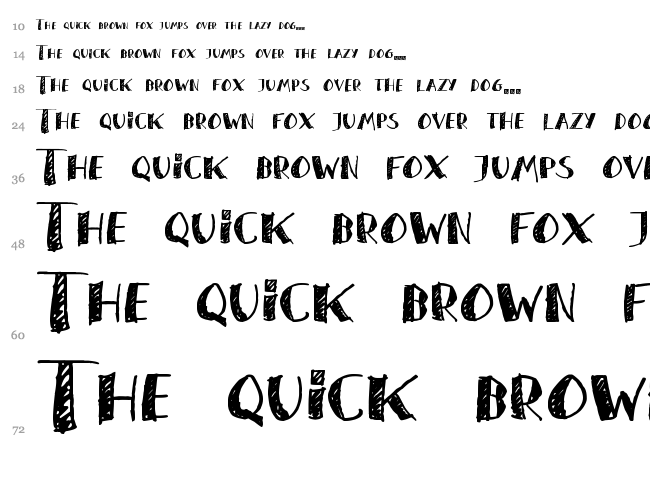 10 The quick brown fox jumps over the lazy dog...
14 The quick brown fox jumps over the lazy dog...
18 The quick brown fox jumps over the lazy dog...
24 The quick brown fox jumps over the lazy dog
36 The quick brown fox jumps ov
48 The quick brown fox j
60 The quick brown f
72 The quick brown